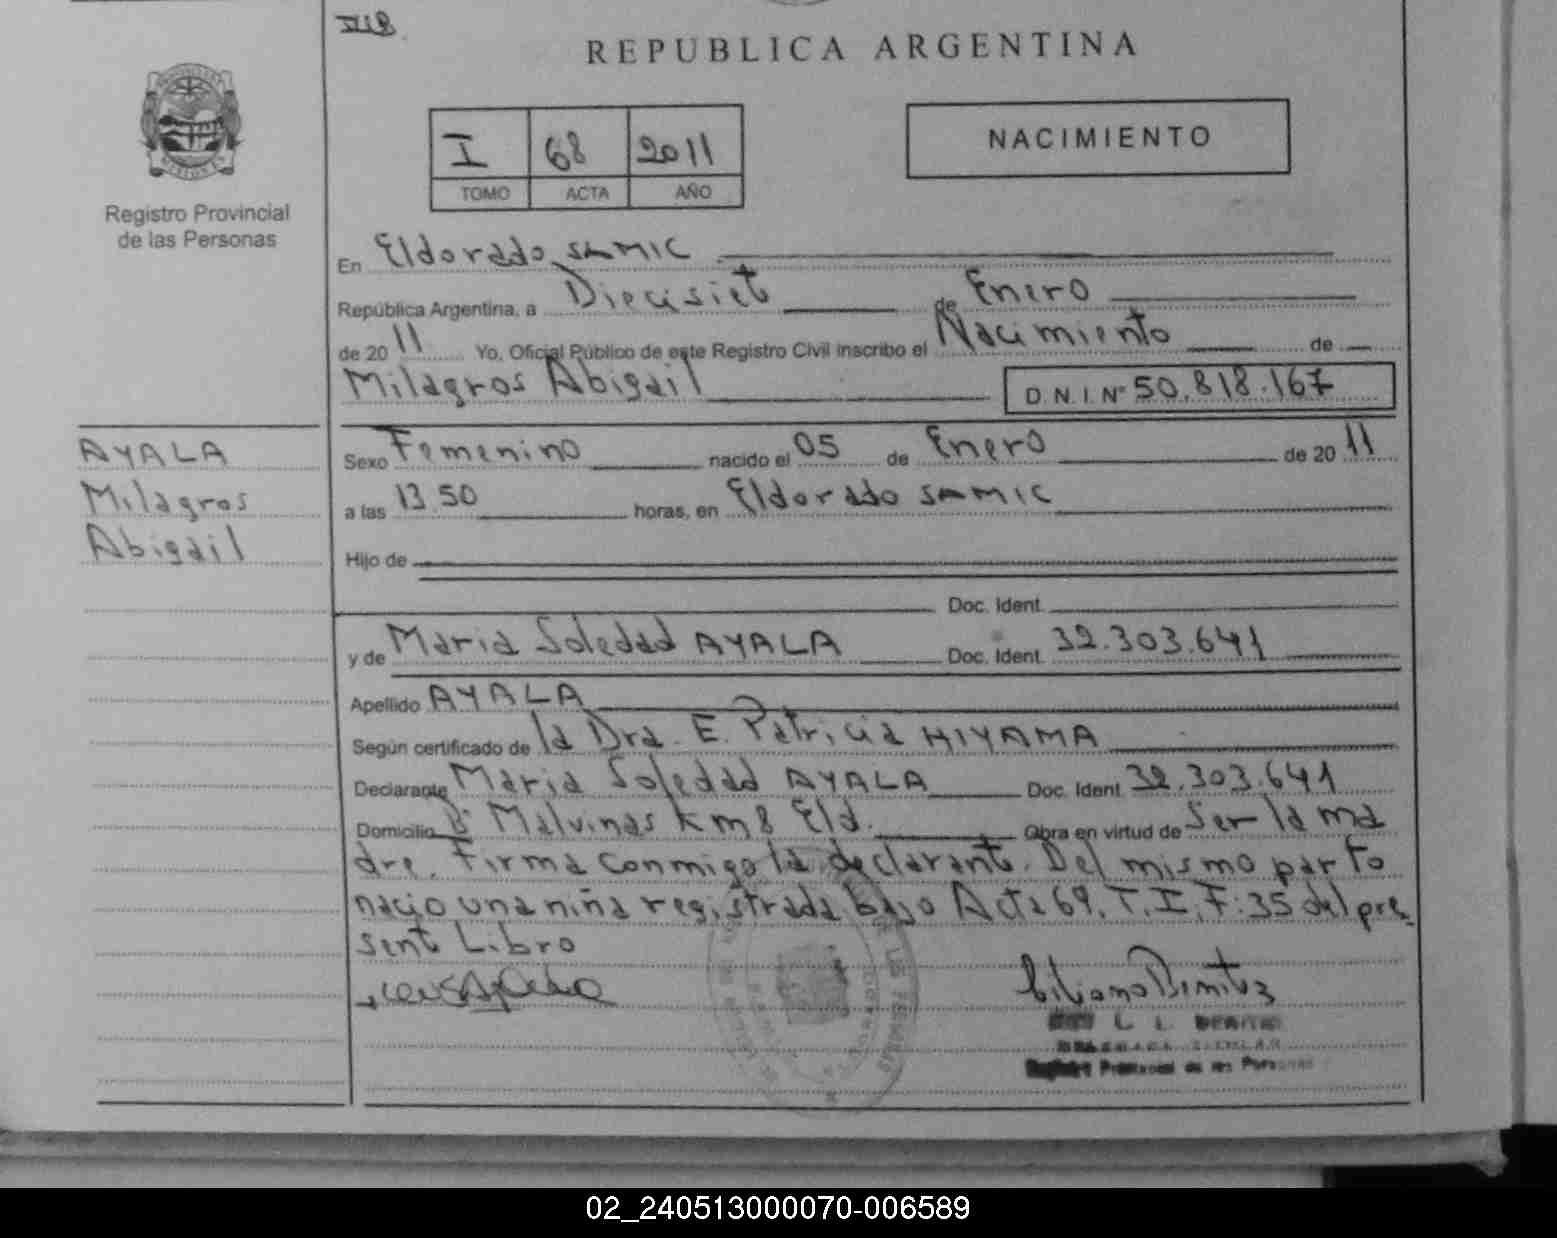 REPUBLICA ARGENTINA
Registro Provincial
de las Personas
I 68 2011
TOMO ACTA AÑO
NACIMIENTO
En Eldorado SAMIC
República Argentina, a Diecisiete de Enero
de 2011 Yo, Oficial Público de este Registro Civil inscribo el Nacimiento de
Milagros Abigail D.N.I. Nº 50.818.167
AYALA
Milagros
Abigail
Sexo Femenino nacido el 05 de Enero de 2011
a las 13.50 horas, en Eldorado SAMIC
Hijo de
Doc. Ident.
y de Maria Soledad AYALA Doc. Ident. 32.303.641
Apellido AYALA
Según certificado de la Dra. E. Patricia HIYAMA
Declarante Maria Soledad AYALA Doc. Ident. 32.303.641
Domicilio Bº Malvinas km 8 Eld. Obra en virtud de Ser la ma
dre. Firma conmigo la declarante. Del mismo parto
nacio una niña registrada bajo Acta 69, T. I, F: 35 del pre
sente Libro
Registro Provincial de las Personas
02_240513000070-006589